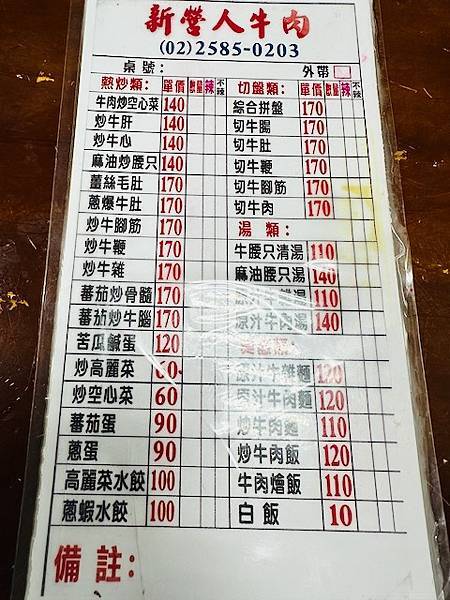 新營人牛肉
(02)2585-0203
桌號: 外帶
熱炒類: 單價 數量 辣 不辣 切盤類: 單價 數量 辣 不辣
牛肉炒空心菜 140 綜合拼盤 170
炒牛肝 140 切牛腸 170
炒牛心 140 切牛肚 170
麻油炒腰只 140 切牛鞭 170
薑絲毛肚 170 切牛腳筋 170
蔥爆牛肚 170 切牛肉 170
炒牛腳筋 170 湯類:
炒牛鞭 170 牛腰只清湯 110
炒牛雜 170 麻油腰只湯 140
蕃茄炒骨髓 170 原汁牛雜湯 110
蕃茄炒牛腦 170 原汁牛肉湯 140
苦瓜鹹蛋 120 類:
炒高麗菜 60 原汁牛雜麵 120
炒空心菜 60 原汁牛肉麵 120
蕃茄蛋 90 炒牛肉麵 110
蔥蛋 90 炒牛肉飯 120
高麗菜水餃 100 牛肉燴飯 110
蔥蝦水餃 100 白飯 10
備註: